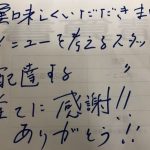 美味しくいただきま
メニューを考えるスタッ
配達する 〃
全てに感謝!!
ありがとう!!